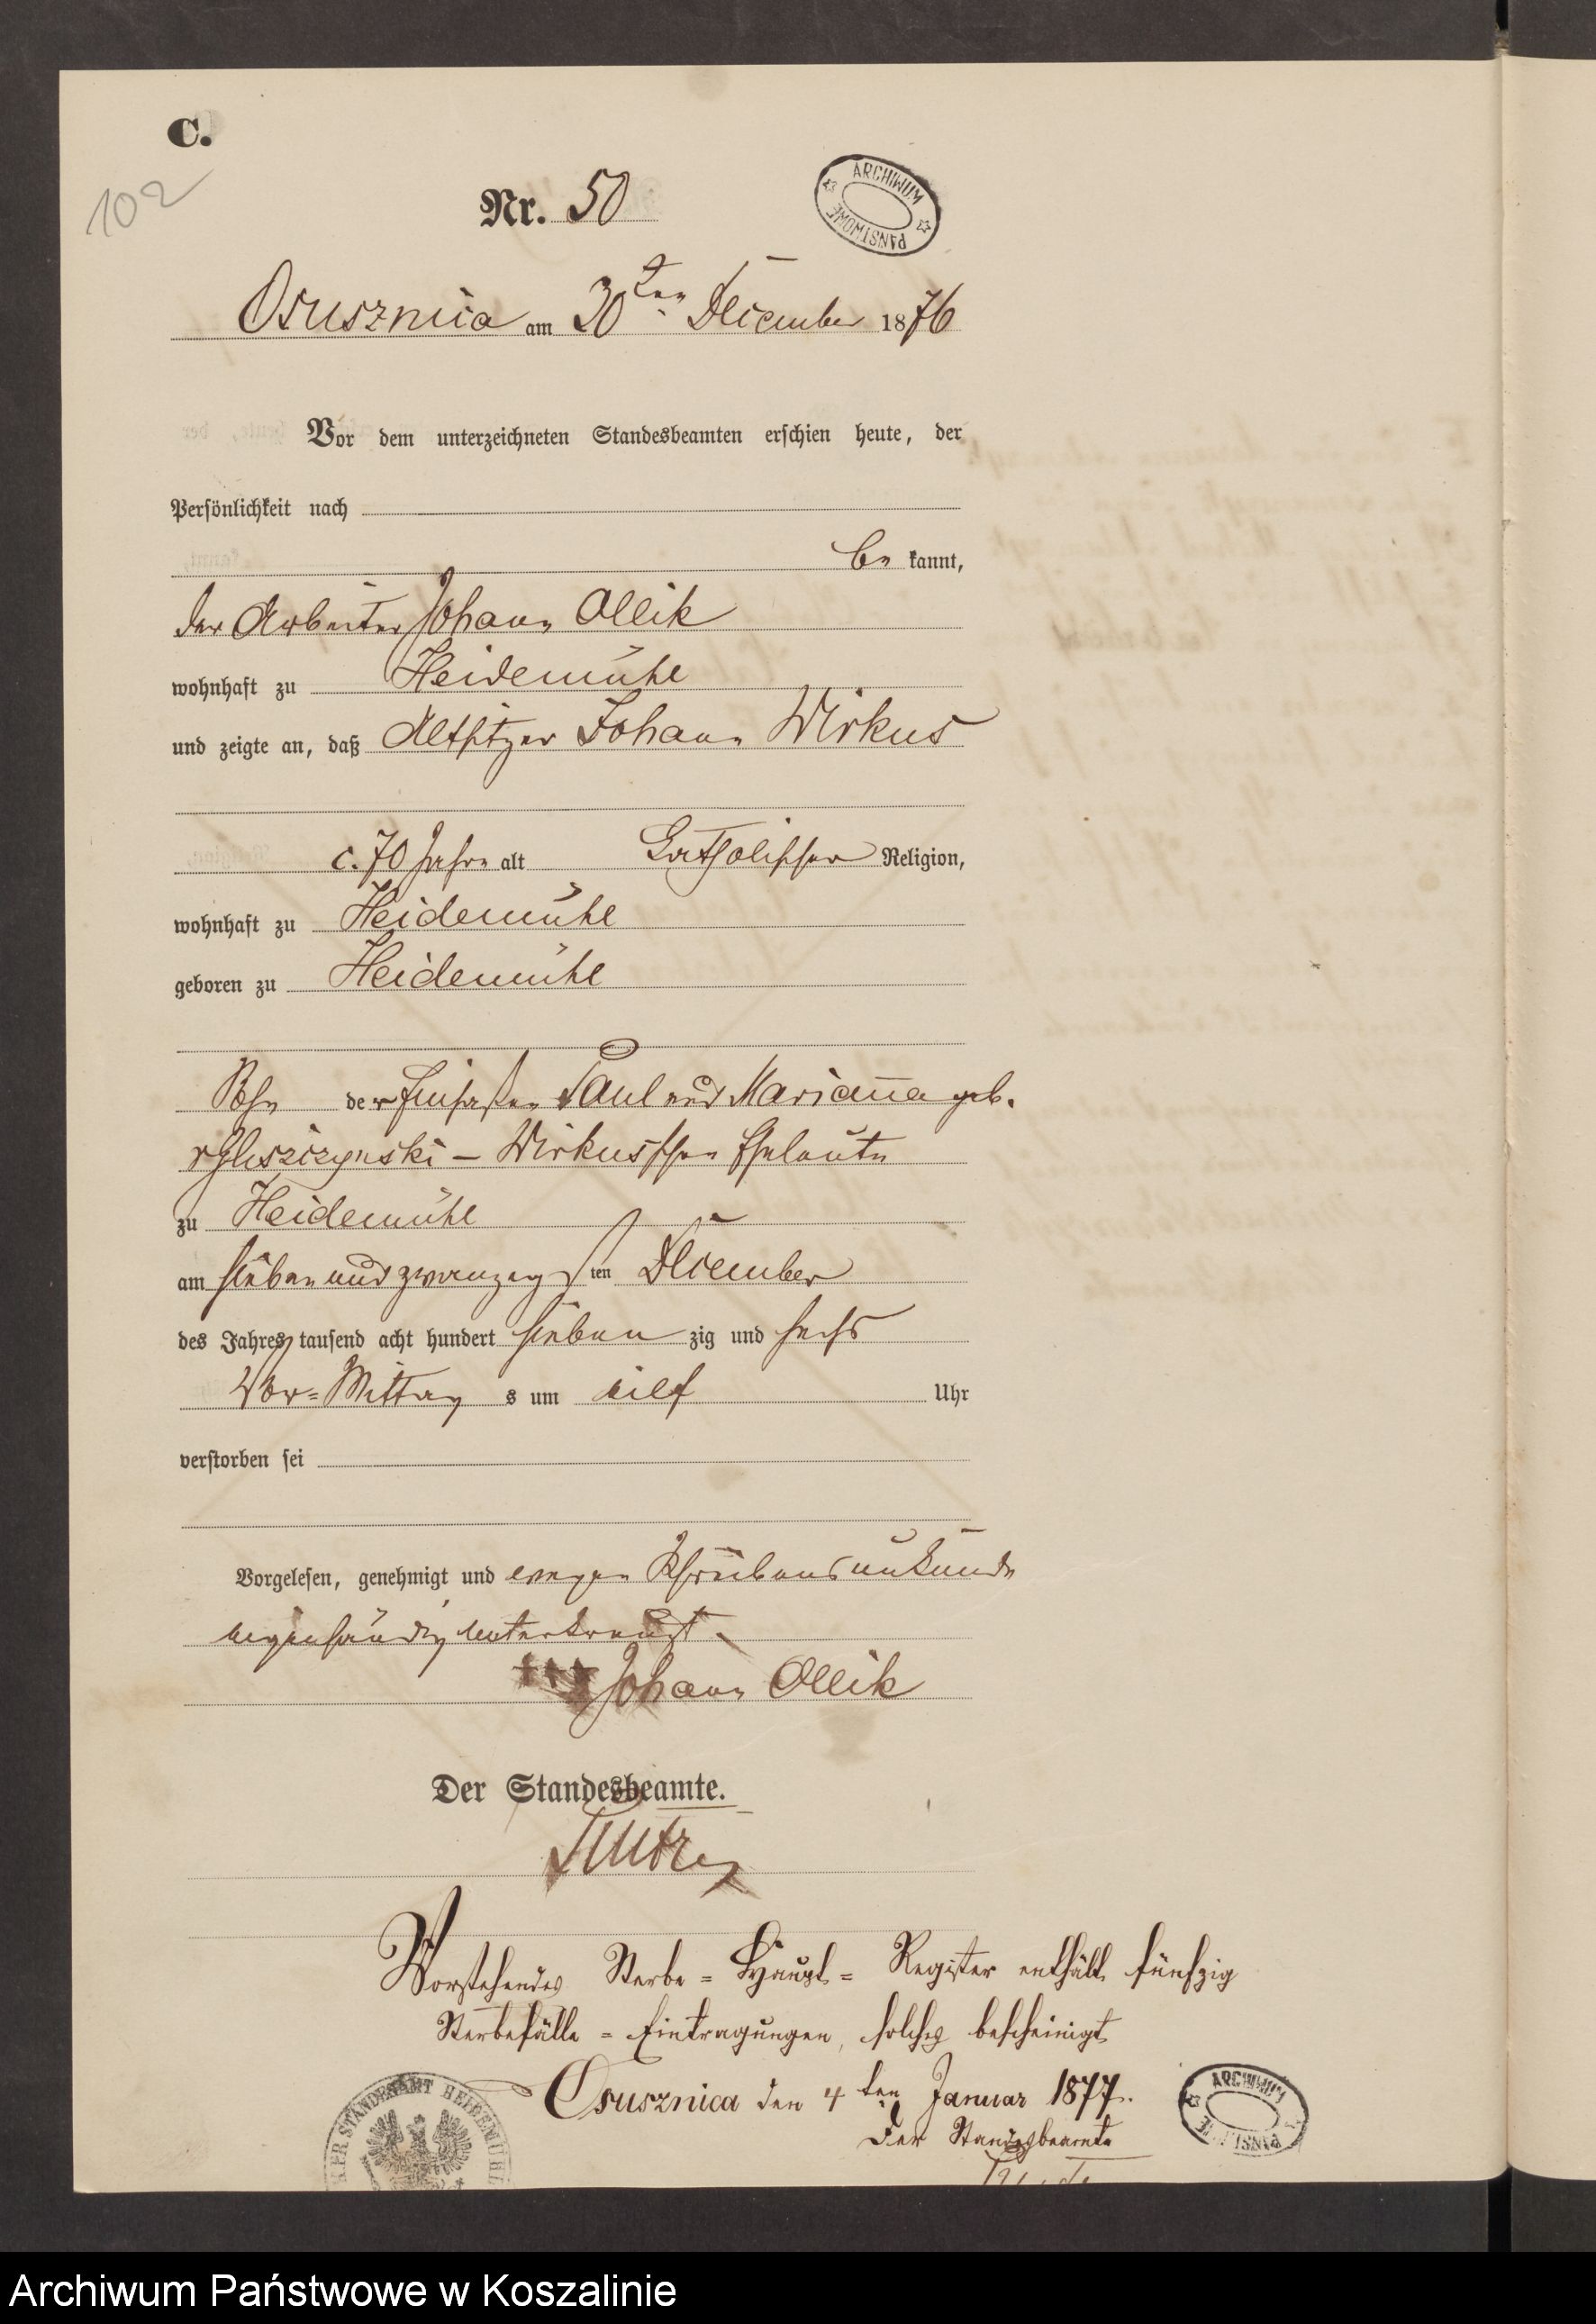 C.
102
Nr. 50
ARCHIWUM PAŃSTWOWE
Osusznica am 30ten December 1876
Vor dem unterzeichneten Standesbeamten erschien heute, der
Persönlichkeit nach
be kannt,
der Arbeiter Johann Ollik
wohnhaft zu Heidemühl
und zeigte an, daß Altsitzer Johann Wirkus
c. 70 Jahre alt Katholischer Religion,
wohnhaft zu Heidemühl
geboren zu Heidemühl
Sohn der Einsaßen Paul und Marianna geb.
Wirkusschen Eheleute
zu Heidemühl
am sieben und zwanzigsten December
des Jahres tausend acht hundert sieben zig und sechs
Vor-Mittag s um eilf Uhr
verstorben sei
Vorgelesen, genehmigt und wegen Schreibensunkunde
eigenhändig unterkreuzt.
+++ Johann Ollik
Der Standesbeamte.
Vorstehendes Sterbe-Haupt-Register enthält fünfzig
Sterbefälle-Eintragungen, solches bescheinigt
Osusznica den 4ten Januar 1877.
Der Standesbeamte
STANDESAMT HEIDEMÜHL
ARCHIWUM
Archiwum Państwowe w Koszalinie